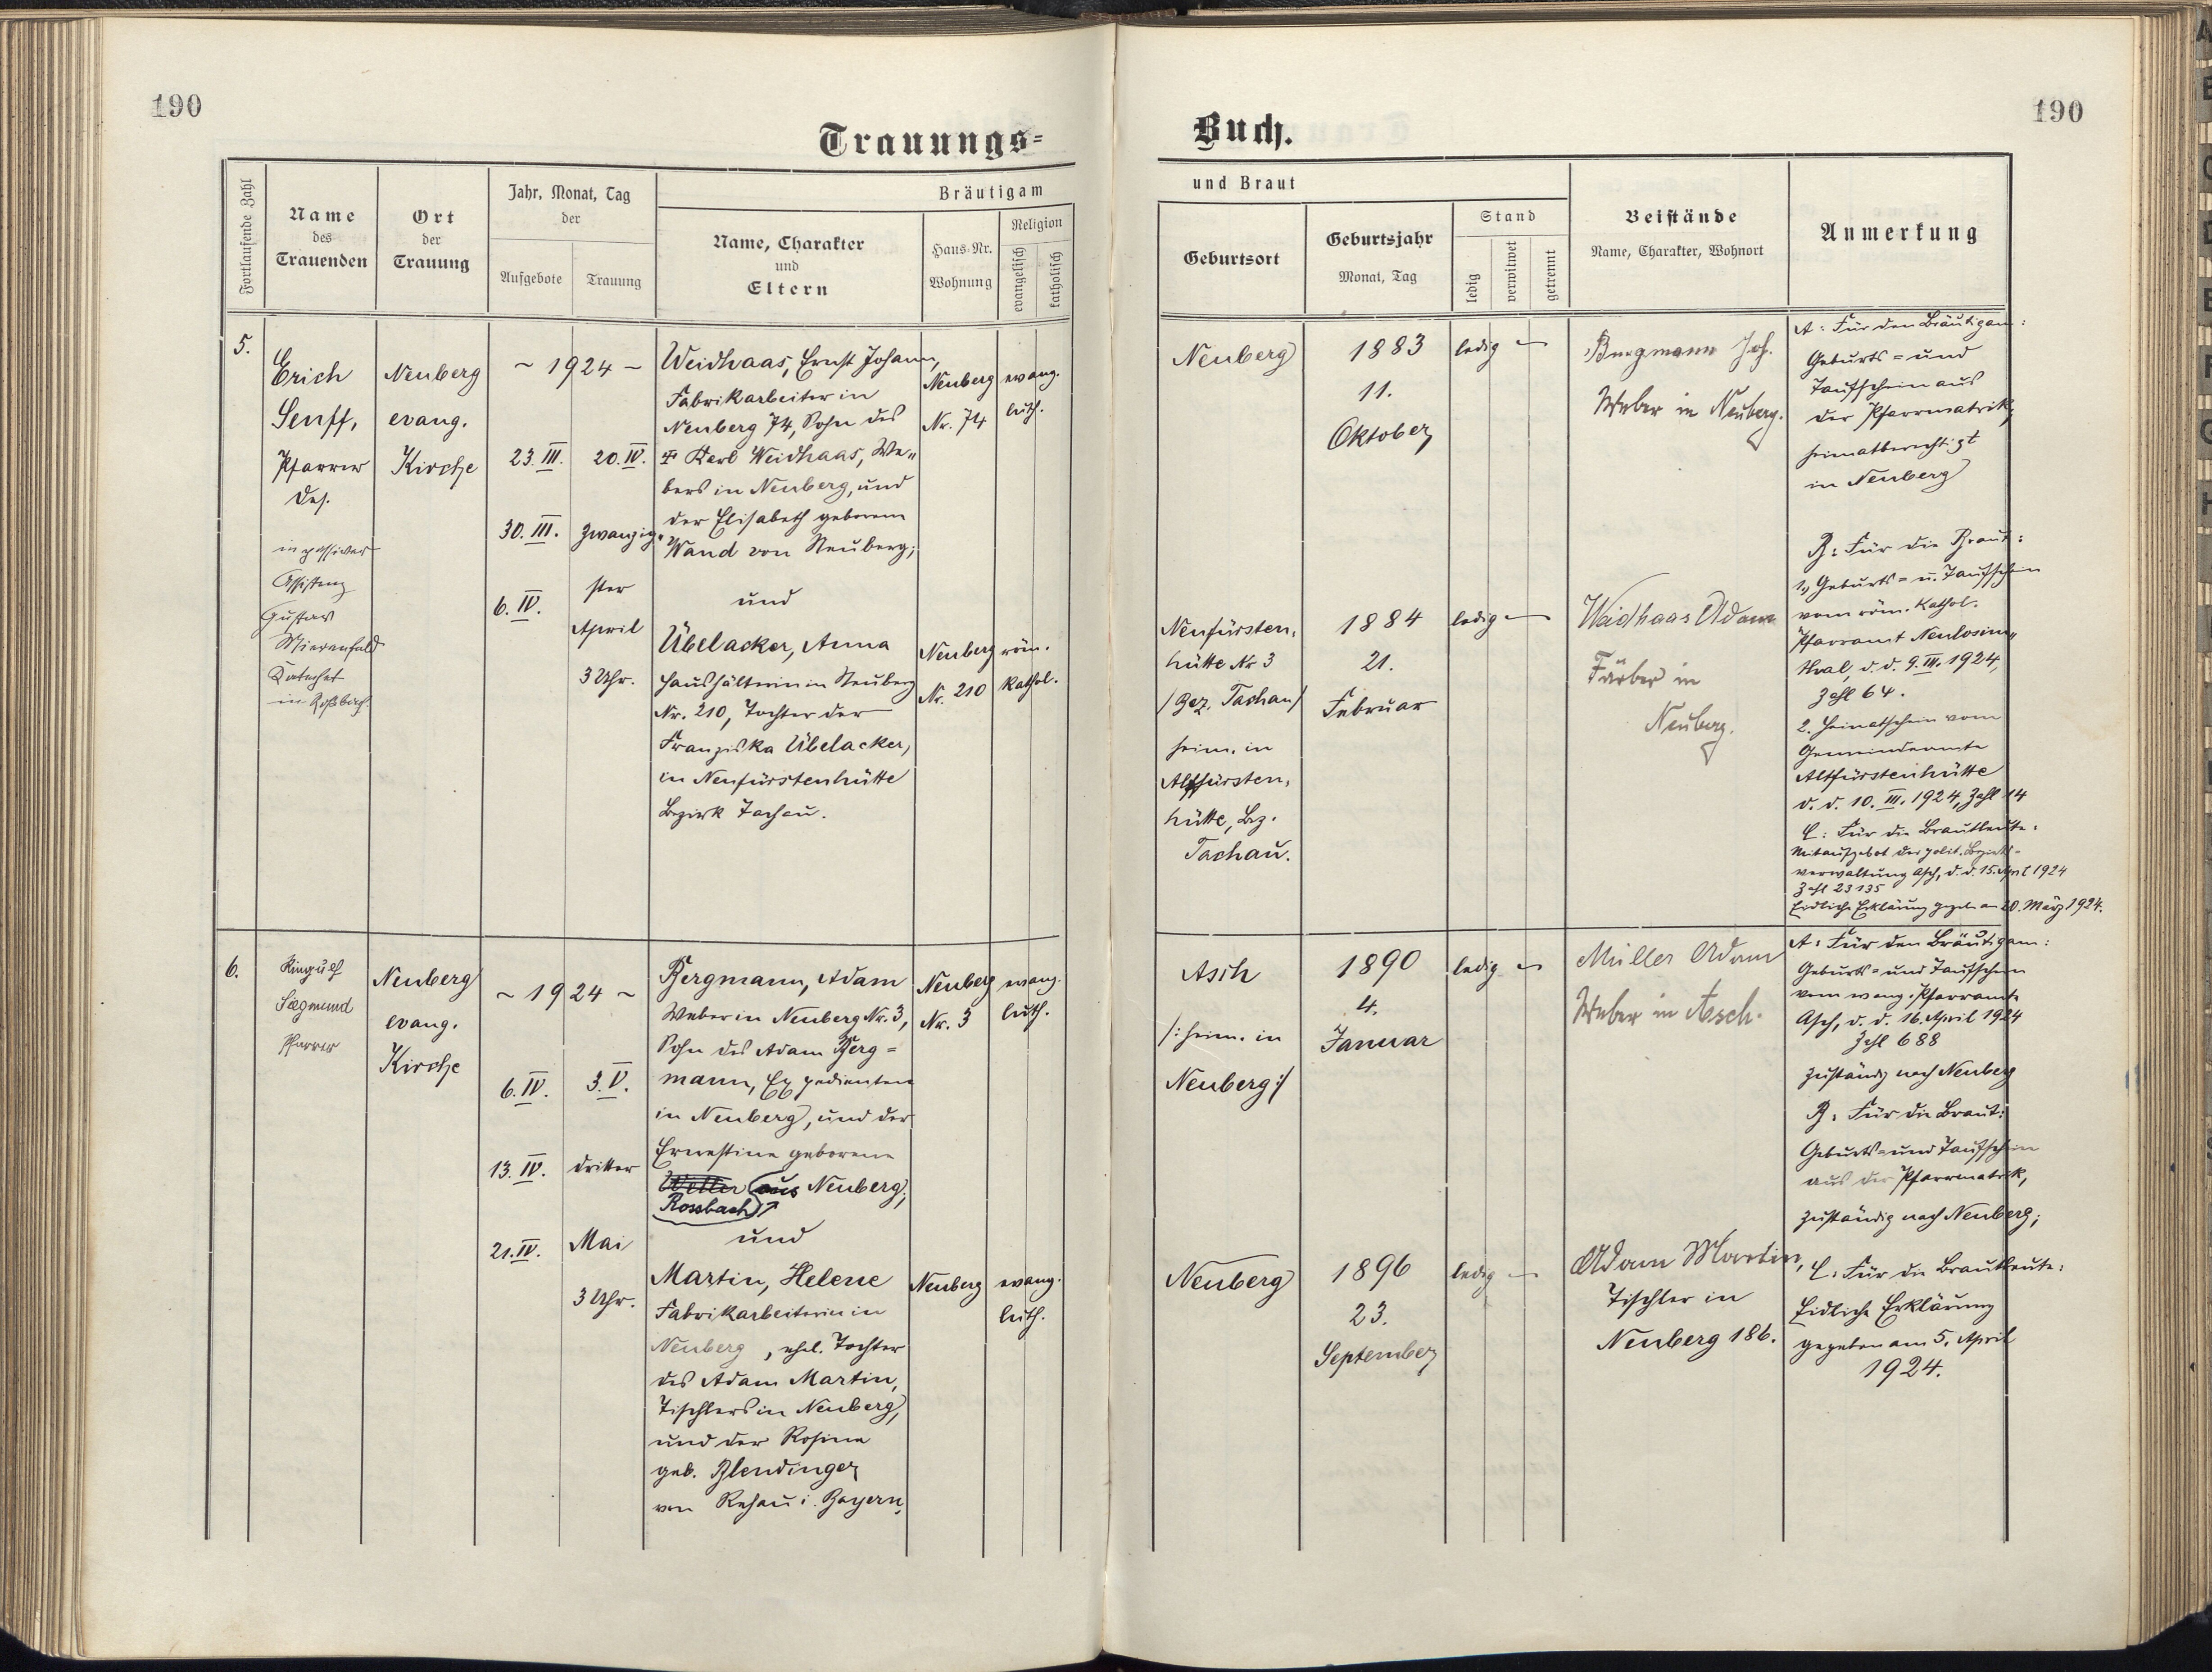 190
190
Trauungs-
Buch.
Fortlaufende Zahl
Name
des
Trauenden
Ort
der
Trauung
Jahr, Monat, Tag
der
Aufgebote
Trauung
Bräutigam
Name, Charakter
und
Eltern
Haus-Nr.
Wohnung
Religion
evangelisch
katholisch
und Braut
Geburtsort
Geburtsjahr
Monat, Tag
Stand
ledig
verwitwet
getrennt
Beistände
Name, Charakter, Wohnort
Anmerkung
5.
Erich
Senff,
Pfarrer
des.
in passiver
Assistenz
Gustav
Katechet
in Roßbach.
Neuberg
evang.
Kirche
~ 1924 ~
23. III.
30. III.
6. IV.
20. IV.
zwanzig-
ster
April
3 Uhr.
Weidhaas, Ernst Johann,
Fabrikarbeiter in
Neuberg 74, Sohn des
Karl Weidhaas, We-
bers in Neuberg, und
der Elisabeth geborene
Wand von Neuberg;
und
Übelacker, Anna
Haushälterin in Neuberg
Nr. 210, Tochter der
Franziska Übelacker,
in Neufürstenhütte
Bezirk Tachau.
Neuberg
Nr. 74
evang.
luth.
Neuberg
Nr. 210
röm.
kathol.
Neuberg
1883
11.
Oktober
ledig
Bergmann Joh.
Weber in Neuberg.
A: Für den Bräutigam:
Geburts- und
Taufschein aus
der Pfarrmatrik,
heimatberechtigt
in Neuberg
Neufürsten-
hütte Nr 3
/Bez. Tachau/
heim. in
Altfürsten-
hütte, Bez.
Tachau.
1884
21.
Februar
ledig
Weidhaas Adam
Färber in
Neuberg.
B: Für die Braut:
1., Geburts- u. Taufschein
vom röm. kathol.
Pfarramt Neulosim-
thal, d. d. 9. III. 1924,
Zahl 64.
2. Heimatschein vom
Gemeindeamte
Altfürstenhütte
d. d. 10. III. 1924, Zahl 14
C: Für die Brautleute:
Mitaufgebot der polit. Bezirks-
verwaltung Asch, d. d. 15. April 1924
Zahl 23135
Eidliche Erklärung gegeben am 20. März 1924.
6.
Ringulf
Siegmund
Pfarrer
Neuberg
evang.
Kirche
~ 1924 ~
6. IV.
13. IV.
21. IV.
3. V.
dritter
Mai
3 Uhr.
Bergmann, Adam
Weber in Neuberg Nr. 3,
Sohn des Adam Berg-
mann, Expedienten
in Neuberg, und der
Ernestine geborene
Wetter aus Neuberg;
Rossbach
und
Martin, Helene
Fabrikarbeiterin in
Neuberg, ehel. Tochter
des Adam Martin,
Tischlers in Neuberg,
und der Rosine
geb. Blendinger
von Rehau i. Bayern.
Neuberg
Nr. 3
evang.
luth.
Neuberg
evang.
luth.
Asch
/: heim. in
Neuberg :/
1890
4.
Januar
ledig
Müller Adam
Weber in Asch.
A: Für den Bräutigam:
Geburts- und Taufschein
vom evang. Pfarramte
Asch, d. d. 16. April 1924
Zahl 688
zuständig nach Neuberg
B: Für die Braut:
Geburts- und Taufschein
aus der Pfarrmatrik,
zuständig nach Neuberg;
Neuberg
1896
23.
September
ledig
Adam Martin,
Tischler in
Neuberg 186.
C: Für die Brautleute:
Eidliche Erklärung
gegeben am 5. April
1924.